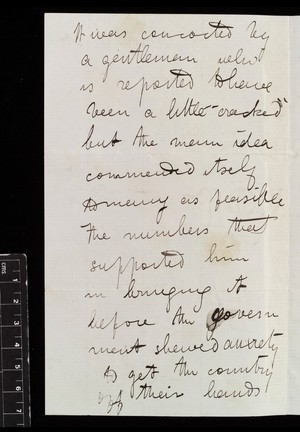 It was concocted by
a gentleman who
is reported to have
been a little "cracked"
but the main idea
commended itself
to many as feasible
The numbers that
supported him
in bringing it
before the govern
ment shewed anxiety
to get the country
off their hands
CMS 1 2 3 4 5 6 7